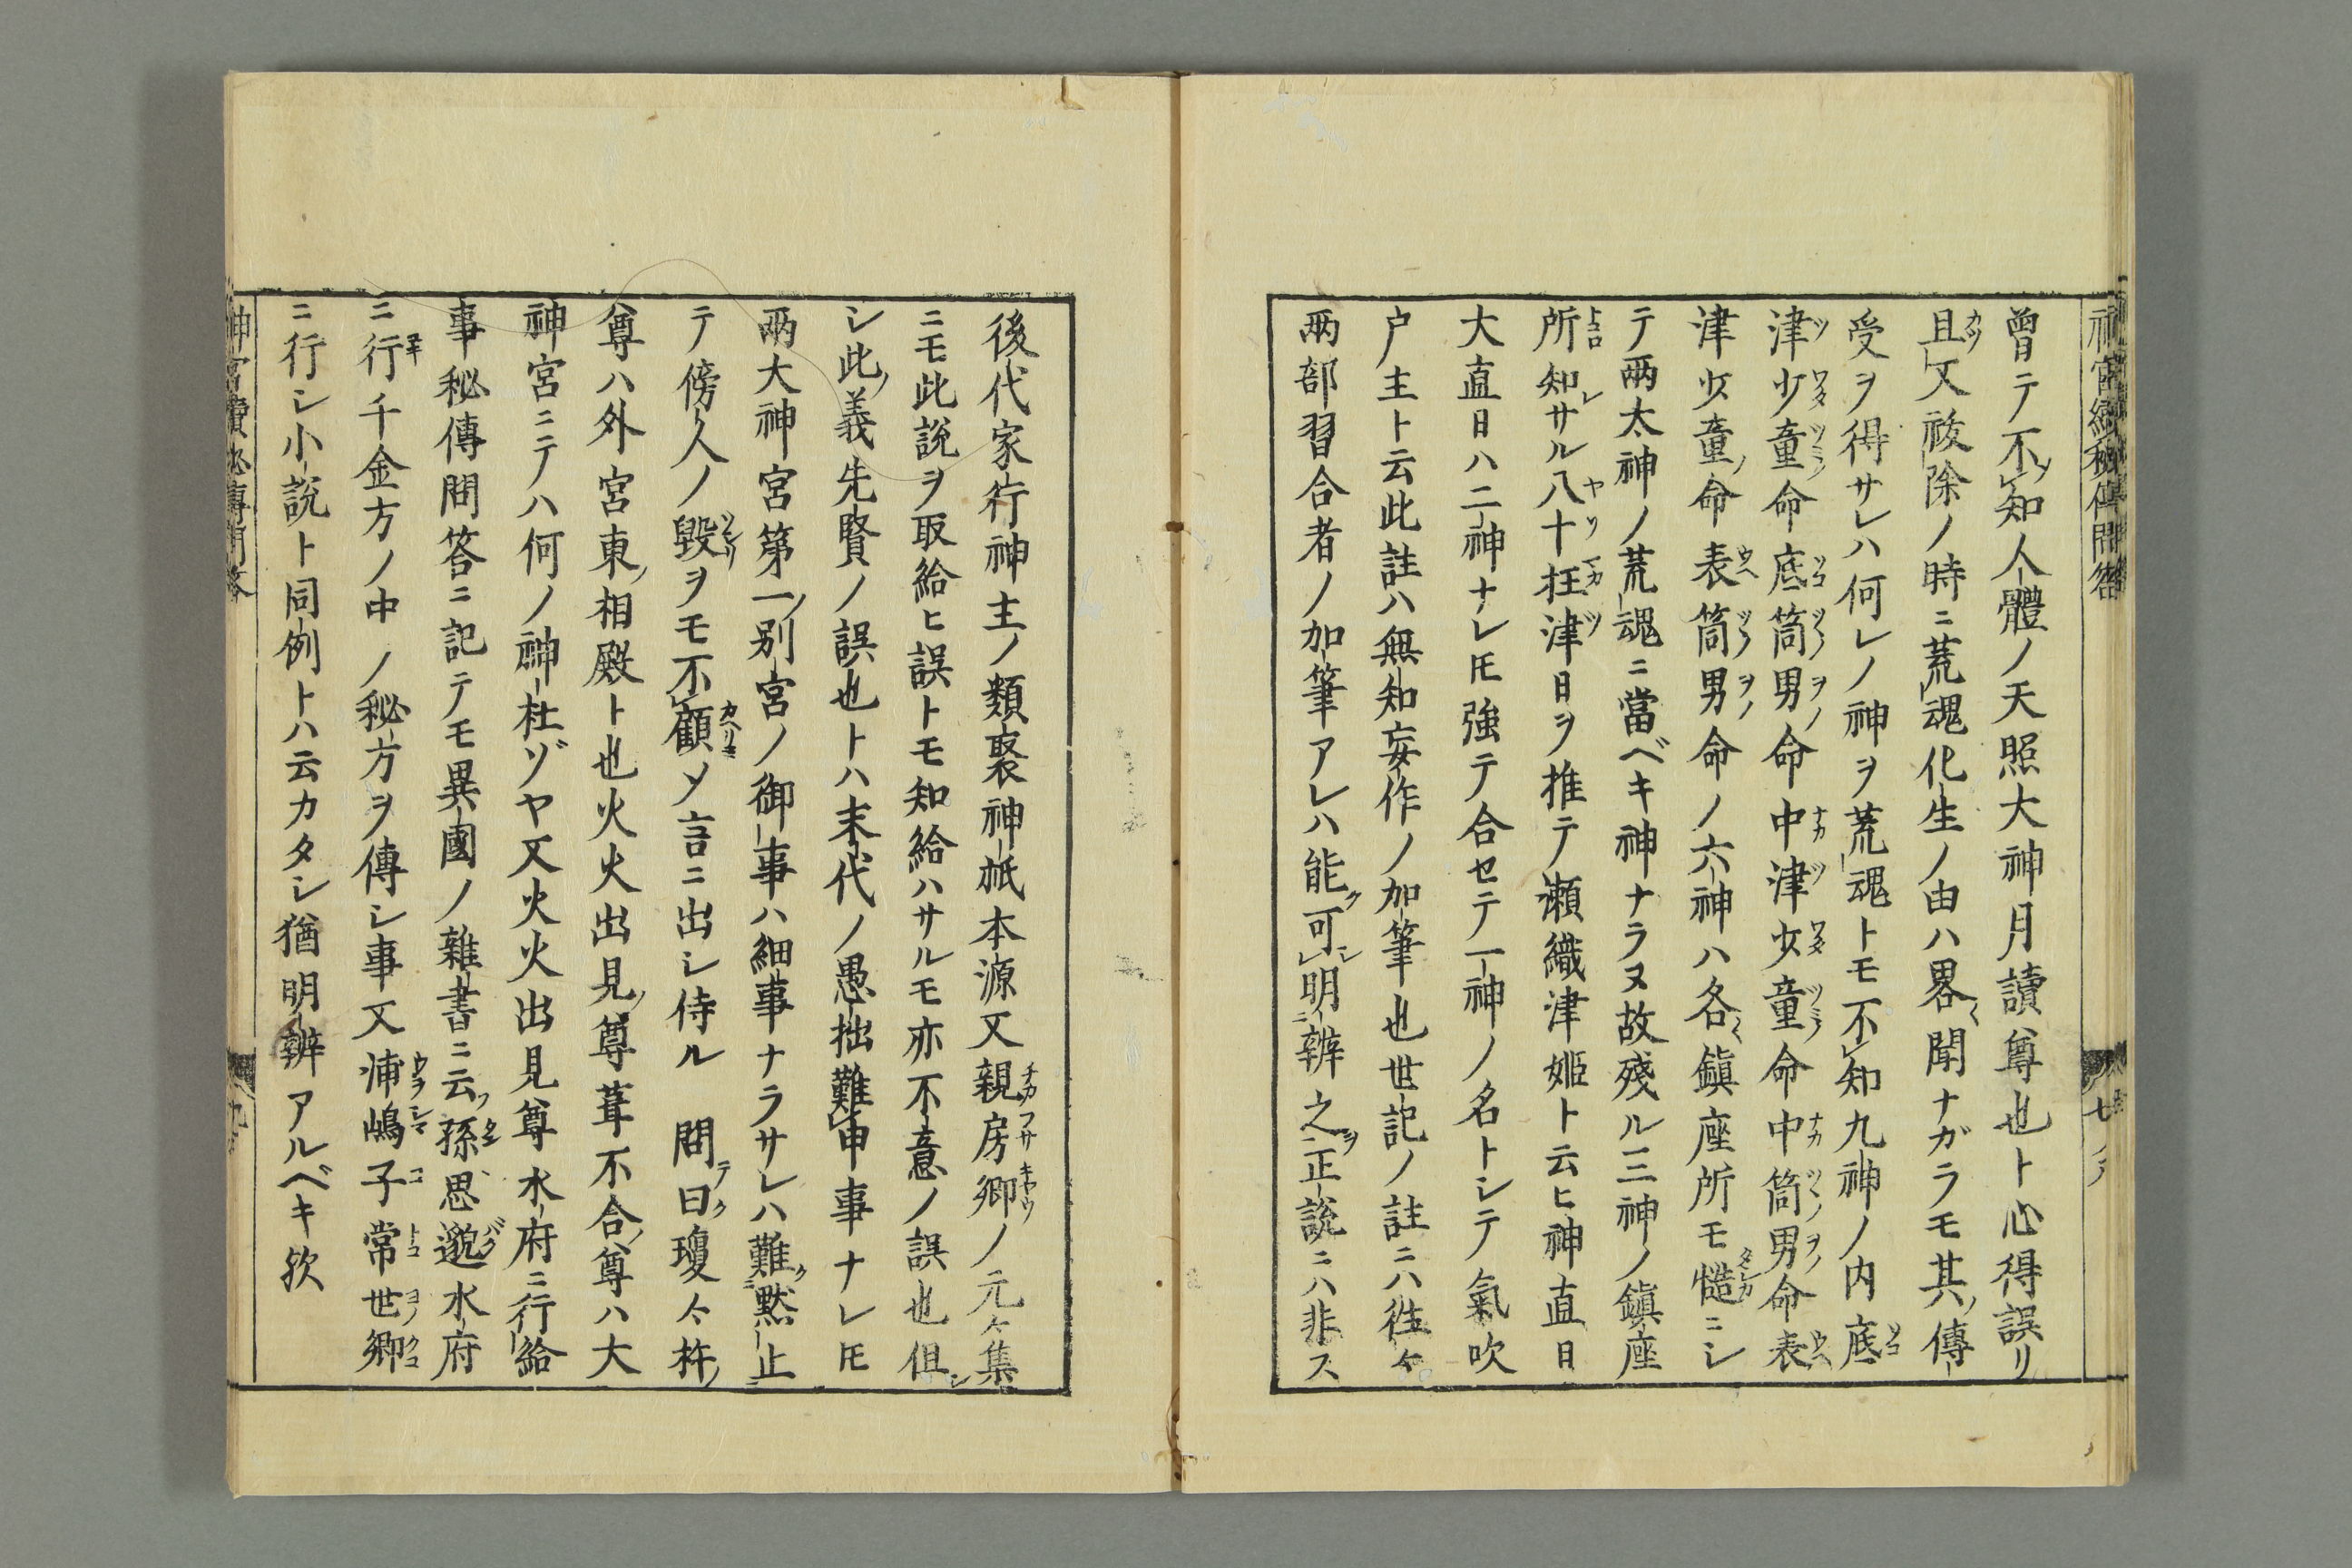 曽テ不知人體ノ天照大神月讀尊也ト心得誤リ
且又祓除ノ時ニ荒魂化生ノ由ハ畧聞ナガラモ其傳
受ヲ得サレハ何レノ神ヲ荒魂トモ不知九神ノ内底
津少童命底筒男命中津少童命中筒男命表
津少童命表筒男命ノ六神ハ各鎮座所モ慥ニシ
テ兩太神ノ荒魂ニ當ベキ神ナラヌ故殘ル三神ノ鎮座
所知サル八十枉津日ヲ推テ瀬織津姫ト云ヒ神直日
大直日ハ二神ナレ𪜈強テ合セテ一神ノ名トシテ氣吹
戸主ト云此註ハ無知妄作ノ加筆也世記ノ註ニハ徃々
兩部習合者ノ加筆アレハ能可明辨之正說ニハ非ス
後代家行神主ノ類聚神祇本源又親房卿ノ元々集
ニモ此說ヲ取給ヒ誤トモ知給ハサルモ亦不意ノ誤也但
シ此義先賢ノ誤也トハ末代ノ愚拙難申事ナレ𪜈
兩大神宮第一別宮ノ御事ハ細事ナラサレハ難黙止
テ傍人ノ毀ヲモ不顧メ言ニ出シ侍ル 問曰瓊々杵
尊ハ外宮東相殿ト也火火出見尊葺不合尊ハ大
神宮ニテハ何ノ神社ゾヤ又火火出見尊水府ニ行給
事秘傳問答ニ記テモ異國ノ雜書ニ云孫思邈水府
ニ行千金方ノ中ノ秘方ヲ傳シ事又浦嶋子常世卿
ニ行シ小說ト同例トハ云カタシ猶明辨アルベキ欤